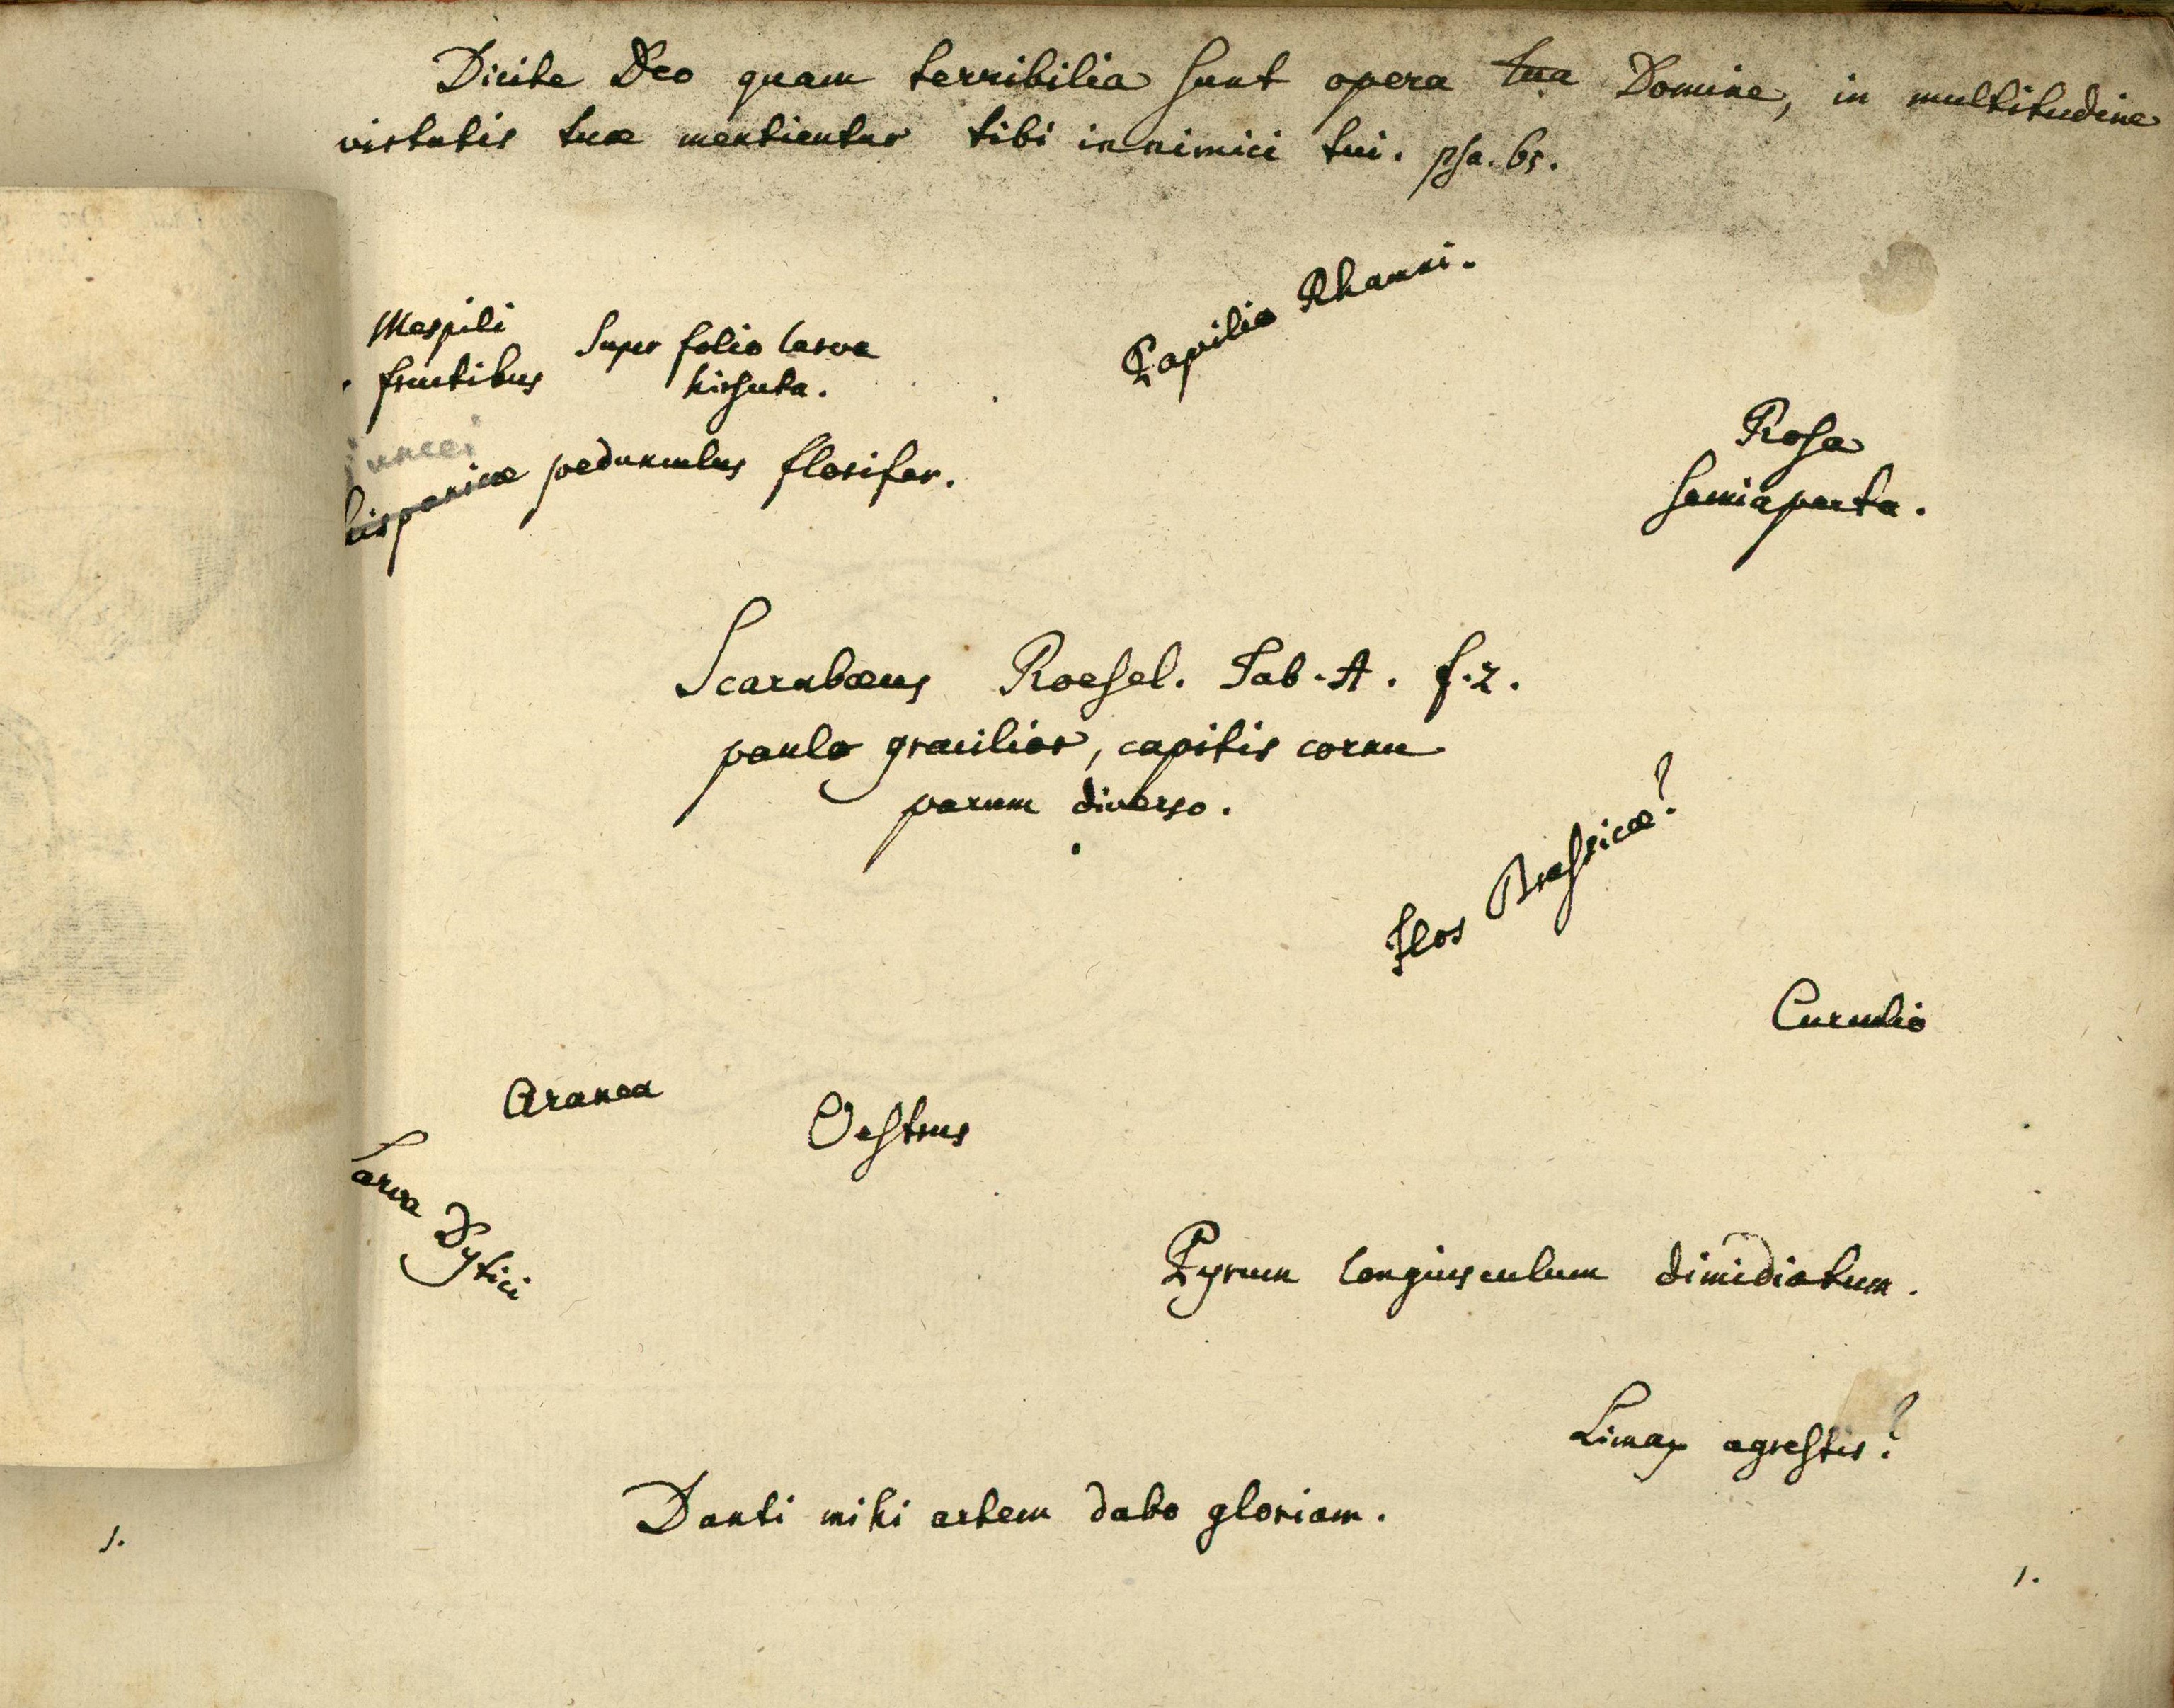 Dicite Deo quam terribilia sunt opera tua Domine, in multitudine
virtutis tuæ mentientur tibi innimici tui. psa. 65.
Papilio Rhamni.
Mespili
fructibus
Super folio larva
hirsuta.
juncei
hispanicæ pedunculus florifer.
Rosa
semiaperta.
Scarabæus Roesel. Tab. A. f. 2.
paulo gracilior, capitis cornu
parum diverso.
Flos Brassicæ?
Curculio
Aranea
Oestrus
Larva Dytici
Pyrum longiusculum dimidiatum.
Limax agrestis?
Danti mihi artem dabo gloriam.
1.
1.